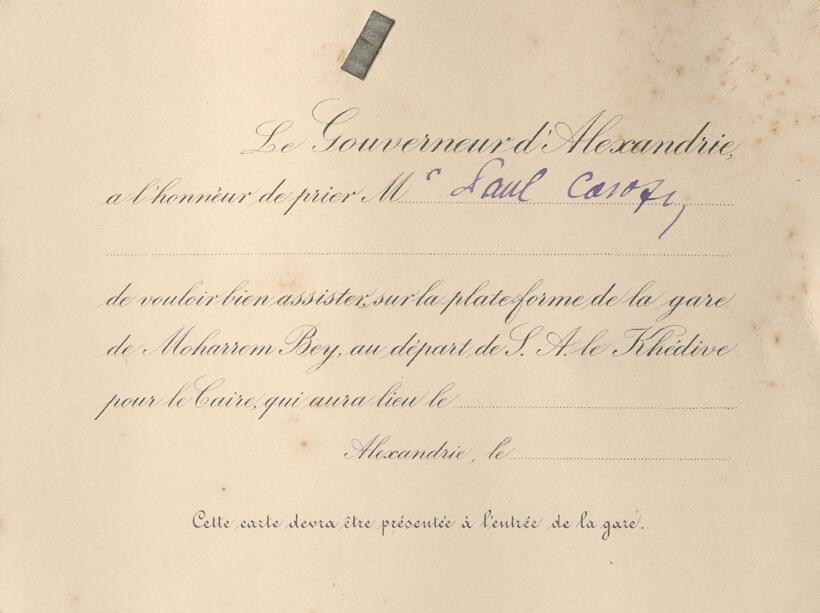 Le Gouverneur d'Alexandrie,
a l'honneur de prier Mr Paul
de vouloir bien assister, sur la plate-forme de la gare
de Moharrem Bey, au départ de S. A. le Khédive
pour le Caire, qui aura lieu le
Alexandrie, le
Cette carte devra être présentée à l'entrée de la gare.